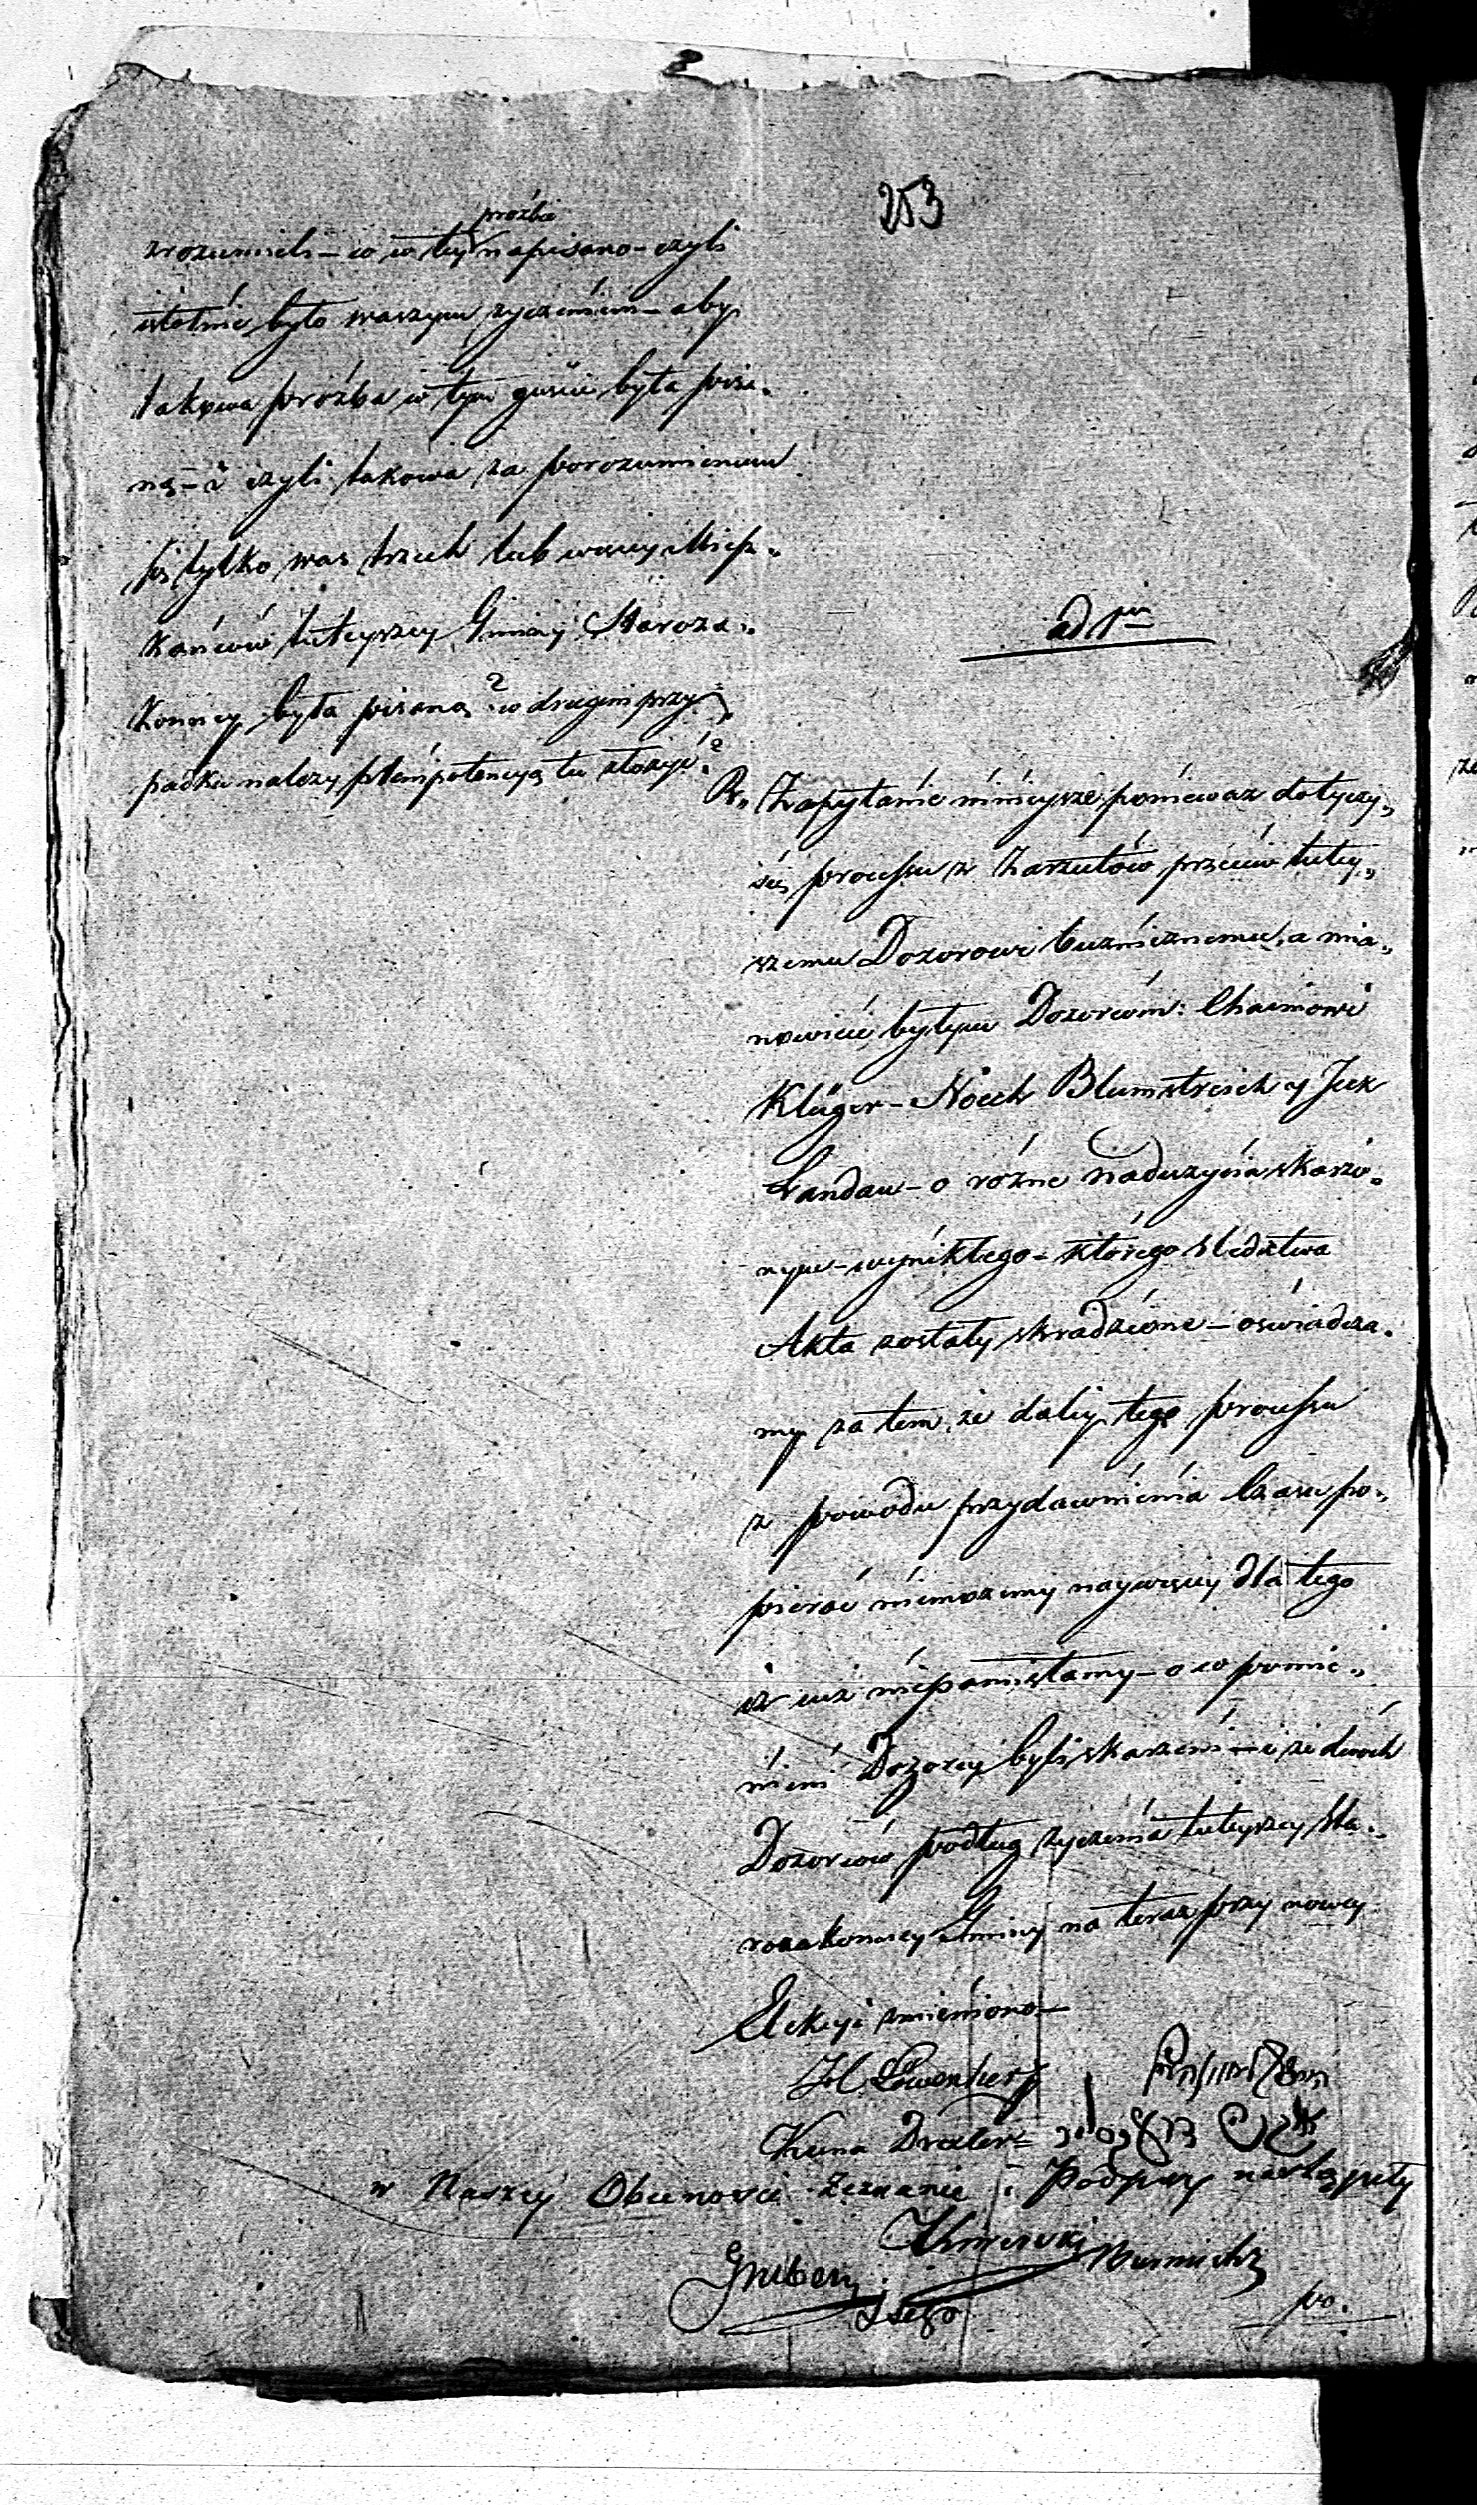 253
prozbie
zrozumieli – co w tey napisano – czyli
istotnie było waszym życzeniem – aby
takowa prozba w tym guście była pisa„
ną – i czyli takowa za porozumieniem
się tylko was trzech lub więcey Miesz„
kańców tuteyszey Gminy Staroza„
konney była pisaną? w drugim przy„
padku należy plenipotencyą tu złożyć?
ad 1m
R„ Zapytanie ninieysze ponieważ dotyczy„
się processu z zarzutów przeciw tutey„
szemu Dozorowi bużnicznemu, a mia„
nowicie byłym Dozorcóm: Chaimowi
Klüger – Noech Blumstreich y Jcek
Landau – o różne nadużycia skarżo„
nym – wynikłego – którego śledztwa
Akta zostały skradzione – oświadcza„
my zatem, że daley tego processu
z powodu przydawnienia czasu po„
pierać niemożemy naywięcey dla tego
iż już niepamiętamy – o co pomie„
nieni Dozorcy byli skarżeni – i że dwóch
Dozorców podług życzenia tuteyszey Sta„
rozakonney Gminy na teraz przy nowey
Elekcyi zmieniono –
Löwenberg
Kuna Drexler
w Naszey Obecnosci Zeznanie i Podpisy nastąpiły
Gruben
po.